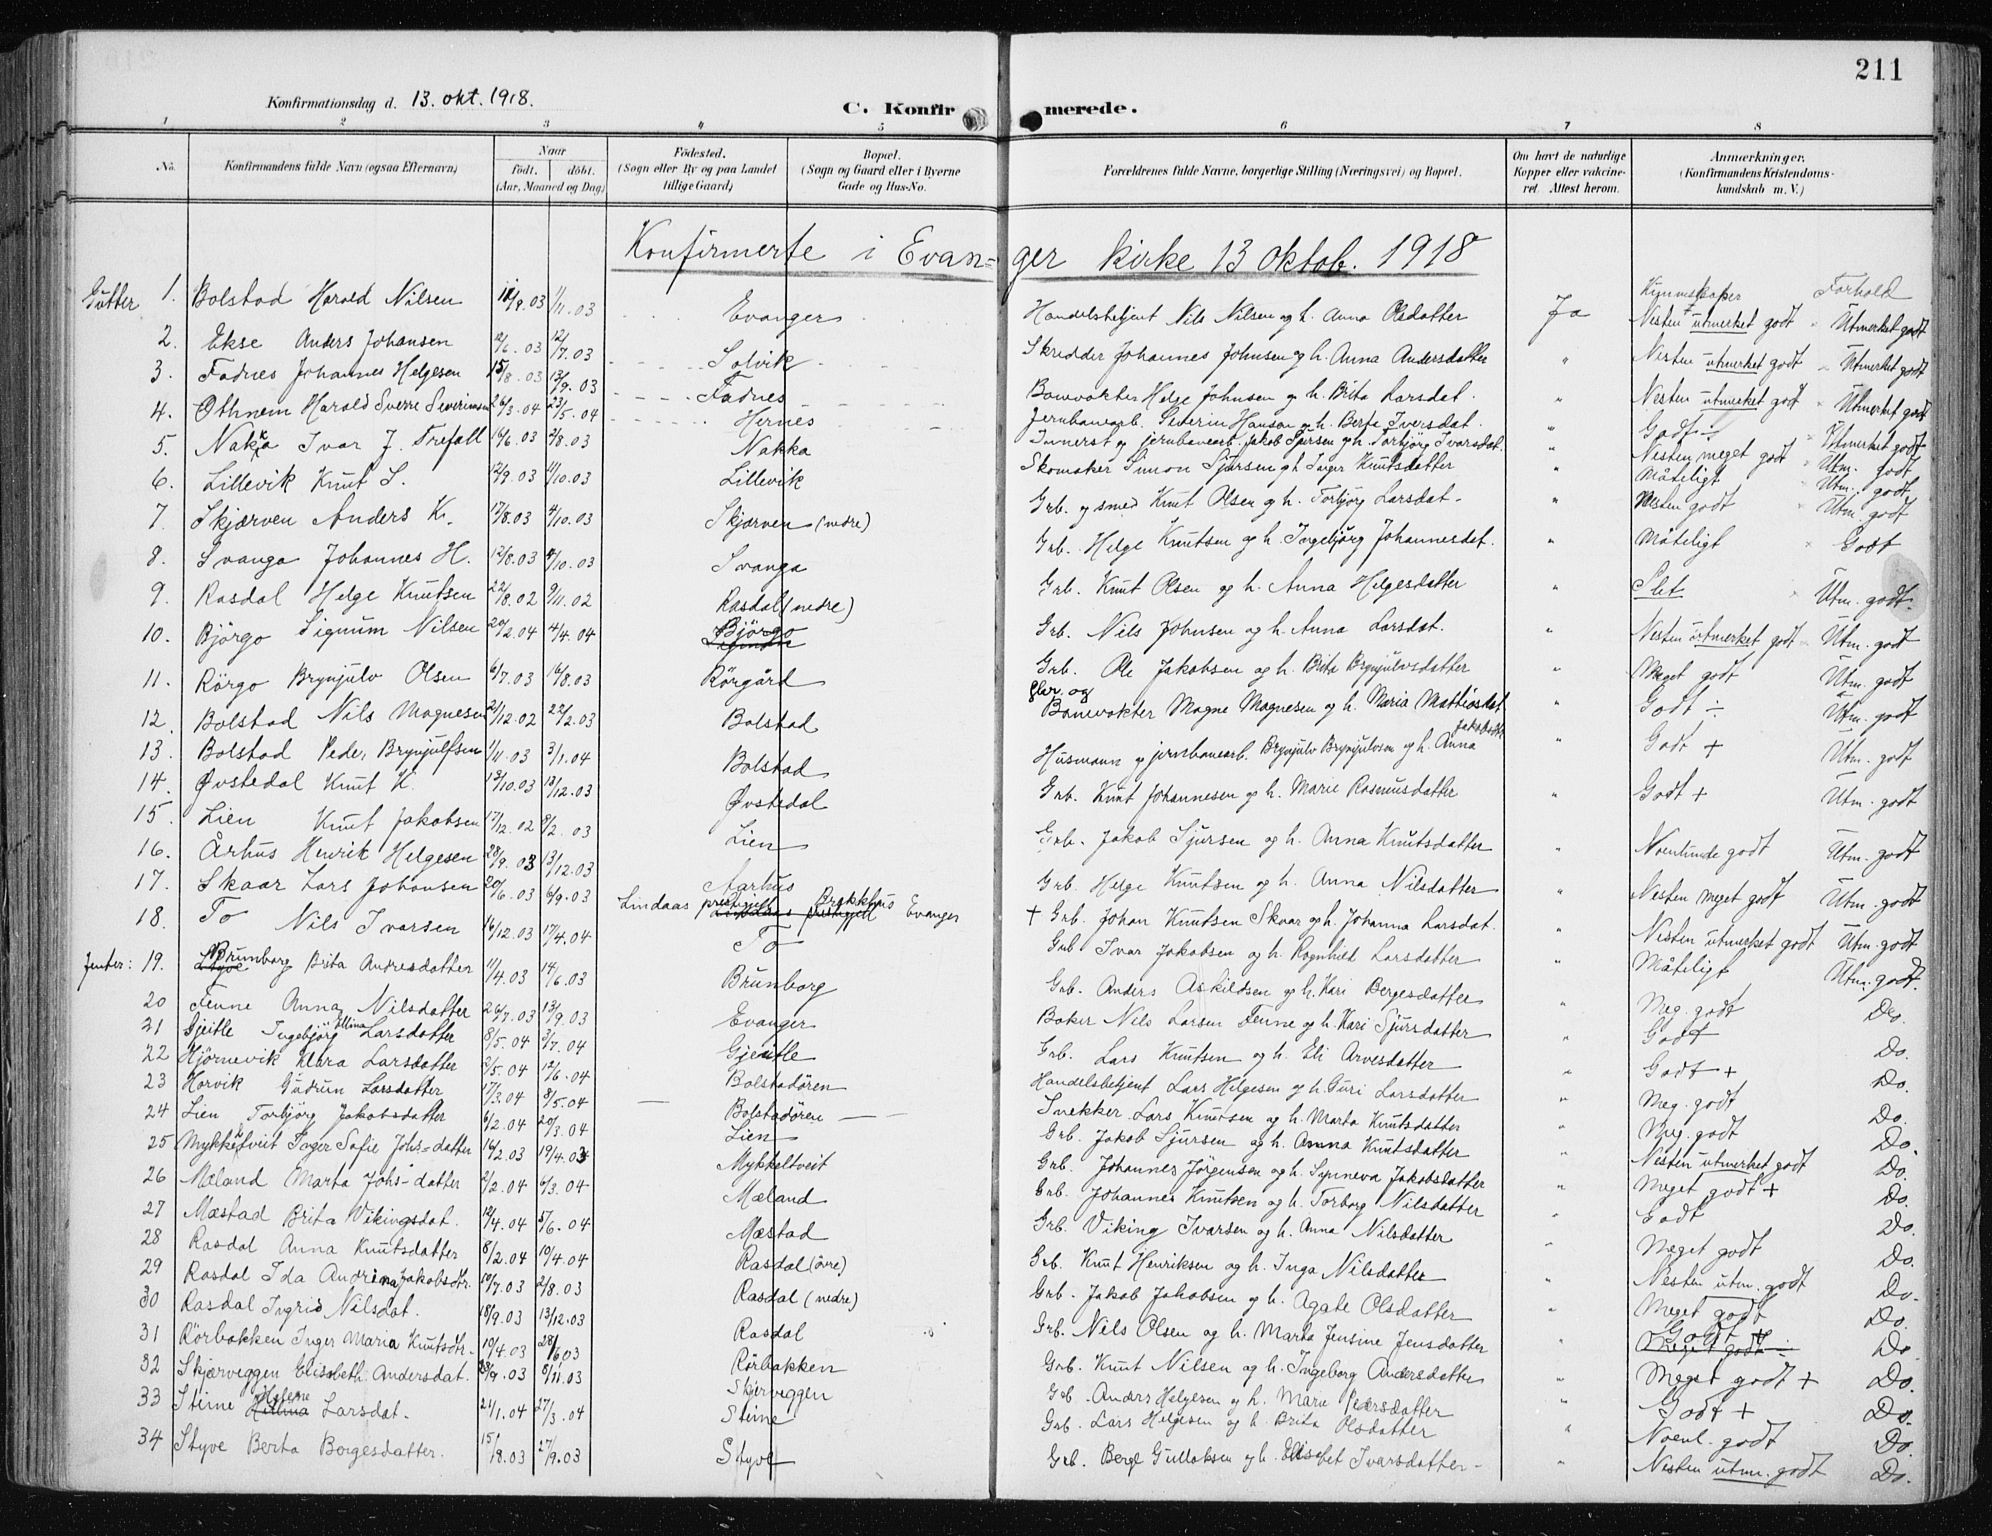 211
Konfirmationsdag d. 13. okt. 1918.
C. Konfirmerede.
1 2 3 4 5 6 7 8
No. Konfirmandens fulde Navn (ogsaa Efternavn). Naar født. døbt. (Aar, Maaned og Dag). Fødested. (Sogn eller By og paa Landet tillige Gaard). Bopæl. (Sogn og Gaard eller i Byerne Gade og Hus-No. Forældrenes fulde Navne, borgerlige Stilling (Næringsvei) og Bopæl. Om havt de naturlige Kopper eller vakcineret. Attest herom. Anmærkninger. (Konfirmandens Kristendomskundskab m. V.)
Konfirmerte i Evanger kirke 13 oktob. 1918
Kunnskaper Forhold
Gutter 1. Bolstad Harald Nilsen 11/9.03 1/11.03 Evanger Handelsbetjent Nils Nilsen og h. Anna Olsdatter Ja Nesten utmerket godt Utmerket godt
2. Ekse Anders Johansen 12/6.03 12/7.03 Solvik Skredder Johannes Johnsen og h. Anna Andersdatter " Nesten utmerket godt Utmerket godt
3. Fadnes Johannes Helgesen 15/8.03 13/9.03 Fadnes Banevokter Helge Johnsen og h. Brita Larsdat. " Nesten utmerket godt Utmerket godt
4. Othnem Harald Sverre Severinsen 26/3.04 23/5.04 Hernes Jernbanearb. Severin Hanson og h. Berta Iversdat. " Godt ÷ Utmerket godt
5. Nakka Ivar J. Trefall 10/6.03 2/8.03 Nakka Innerst og jernbanearb. Jakob Sjursen og h. Torbjörg Ivarsdat. " Nesten meget godt Utm. godt
6. Lillevik Knut S. 12/9.03 11/10.03 Lillevik Skomaker Simon Sjursen og h. Inger Knutsdatter " Måteligt Utm. godt
7. Skjærven Anders K. 17/8.03 4/10.03 Skjærven (nedre) Grb. og smed Knut Olsen og h. Torbjörg Larsdat. " Nesten godt Utm. godt
8. Svanga Johannes H. 12/8.03 4/10.03 Svanga Grb. Helge Knutsen og h. Ingebjörg Johannesdat. " Måteligt Godt
9. Rasdal Helge Knutsen 22/8.02 9/11.02 Rasdal (nedre) Grb. Knut Olsen og h. Anna Helgesdatter " Slet Utm. godt.
10. Bjørgo Sigmund Nilsen 20/2.04 4/4.04 Bjørgo Grb. Nils Johnsen og h. Anna Larsdat. " Nesten utmerket godt Utm. godt
11. Rörgo Brynjulv Olsen 6/7.03 16/8.03 Rörgård Grb. Ole Jakobsen og h. Brita Brynjulvsdatter " Meget godt Utm. godt
12. Bolstad Nils Magnesen 21/12.02 22/2.03 Bolstad Gbr. og Banevokter Magne Magnesen og h. Maria Mattiasdat. " Godt ÷ Utm. godt
13. Bolstad Peder Brynjulfsen 1/11.03 3/1.04 Bolstad Husmann og jernbanearb. Brynjulv Brynjulvsen og h. Anna Jakobsdt. " Godt + Utm. godt
14. Øvstedal Knut K. 13/10.03 13/12.03 Øvstedal Grb. Knut Johannesen og h. Marie Rasmusdatter " Godt + Utm. godt
15. Lien Knut Jakobsen 17/12.02 8/2.03 Lien Grb. Jakob Sjursen og h. Anna Knutsdatter " Noenlunde godt Utm. godt
16. Århus Henrik Helgesen 28/9.03 13/12.03 Aarhus Grb. Helge Knutsen og h. Anna Nilsdatter " Nesten meget godt Utm. godt
17. Skaar Lars Johansen 20/6.03 6/9.03 Lindaas prestegjelt Brakkhus Evanger + Grb. Johan Knutsen Skaar og h. Johanna Larsdat. " Nesten utmerket godt Utm. godt
18. To Nils Ivarsen 16/12.03 17/4.04 To Grb Ivar Jakobsen og h. Ragnhild Larsdatter " Måteligt Utm. godt.
Jenter: 19. Brunborg Brita Andersdatter 11/4.03 14/6.03 Brunborg Grb. Anders Askildsen og h. Kari Bergesdatter " Meg. godt Do.
20 Fenne Anna Nilsdatter 26/7.03 13/9.03 Evanger Baker Nils Larsen Fenne og h. Kari Sjursdatter " Godt Do.
21 Gjeitle Ingebjörg Ellina Larsdatter 8/5.04 3/7.04 Gjeitle Grb. Lars Knutsen og h. Eli Arvesdatter " Godt + Do.
22 Hjörnevik Klara Larsdatter 3/5.04 12/6.04 Bolstadören Handelsbetjent Lars Helgesen og h. Guri Larsdatter " Meg. godt Do.
23 Horvik Gudrun Larsdatter 17/3.04 8/5.04 Bolstadören Snekker Lars Knutsen og h. Marta Knutsdatter " Meg. godt Do.
24 Lien Torbjörg Jakobsdatter 6/2.04 20/3.04 Lien Grb. Jakob Sjursen og h. Anna Knutsdatter " Nesten utmerket godt Do.
25 Mykkeltveit Inger Sofie Johs-datter 16/2.03 19/4.03 Mykkeltveit Grb. Johannes Jörgensen og h. Synneva Jakobsdatter " Meget godt + Do.
26 Mæland Marta Johs-datter 2/2.04 6/3.04 Mæland Grb. Johannes Knutsen og h. Torborg Nilsdatter " Godt Do.
27 Mæstad Brita Vikingsdat. 12/4.04 5/6.04 Mæstad Grb. Viking Ivarsen og h. Anna Nilsdatter " Meget godt Do.
28 Rasdal Anna Knutsdatter 8/2.04 10/4.04 Rasdal (övre) Grb. Knut Henriksen og h. Inga Nilsdatter " Nesten utm. godt Do.
29 Rasdal Ida Andrina Jakobsdtr. 10/7.03 2/8.03 Rasdal (nedre) Grb. Jakob Jakobsen og h. Agate Olsdatter " Meget godt Do.
30 Rasdal Ingrid Nilsdat. 18/9.03 13/12.03 Rasdal Grb. Nils Olsen og h. Marta Jensine Jensdatter " Godt + Meget godt Do.
31 Rörbakken Inger Maria Knutsdtr. 10/4.03 28/6.03 Rörbakken Grb. Knut Nilsen og h. Ingeborg Andersdatter " Meget godt + Do.
32 Skjærveggen Elisabeth Andersdat. 23/9.03 8/11.03 Skjerveggen Grb. Anders Helgesen og h. Marie Pedersdatter " Godt + Do.
33 Steine Helene Larsdat. 21/1.04 27/3.04 Steine Grb. Lars Helgesen og h. Brita Olsdatter " Noenl. godt Do.
34 Styve Berta Borgesdatter. 15/8.03 27/9.03 Styve Grb. Berge Gullaksen og h. Elisabet Ivarsdatter " Nesten utm. godt Do.